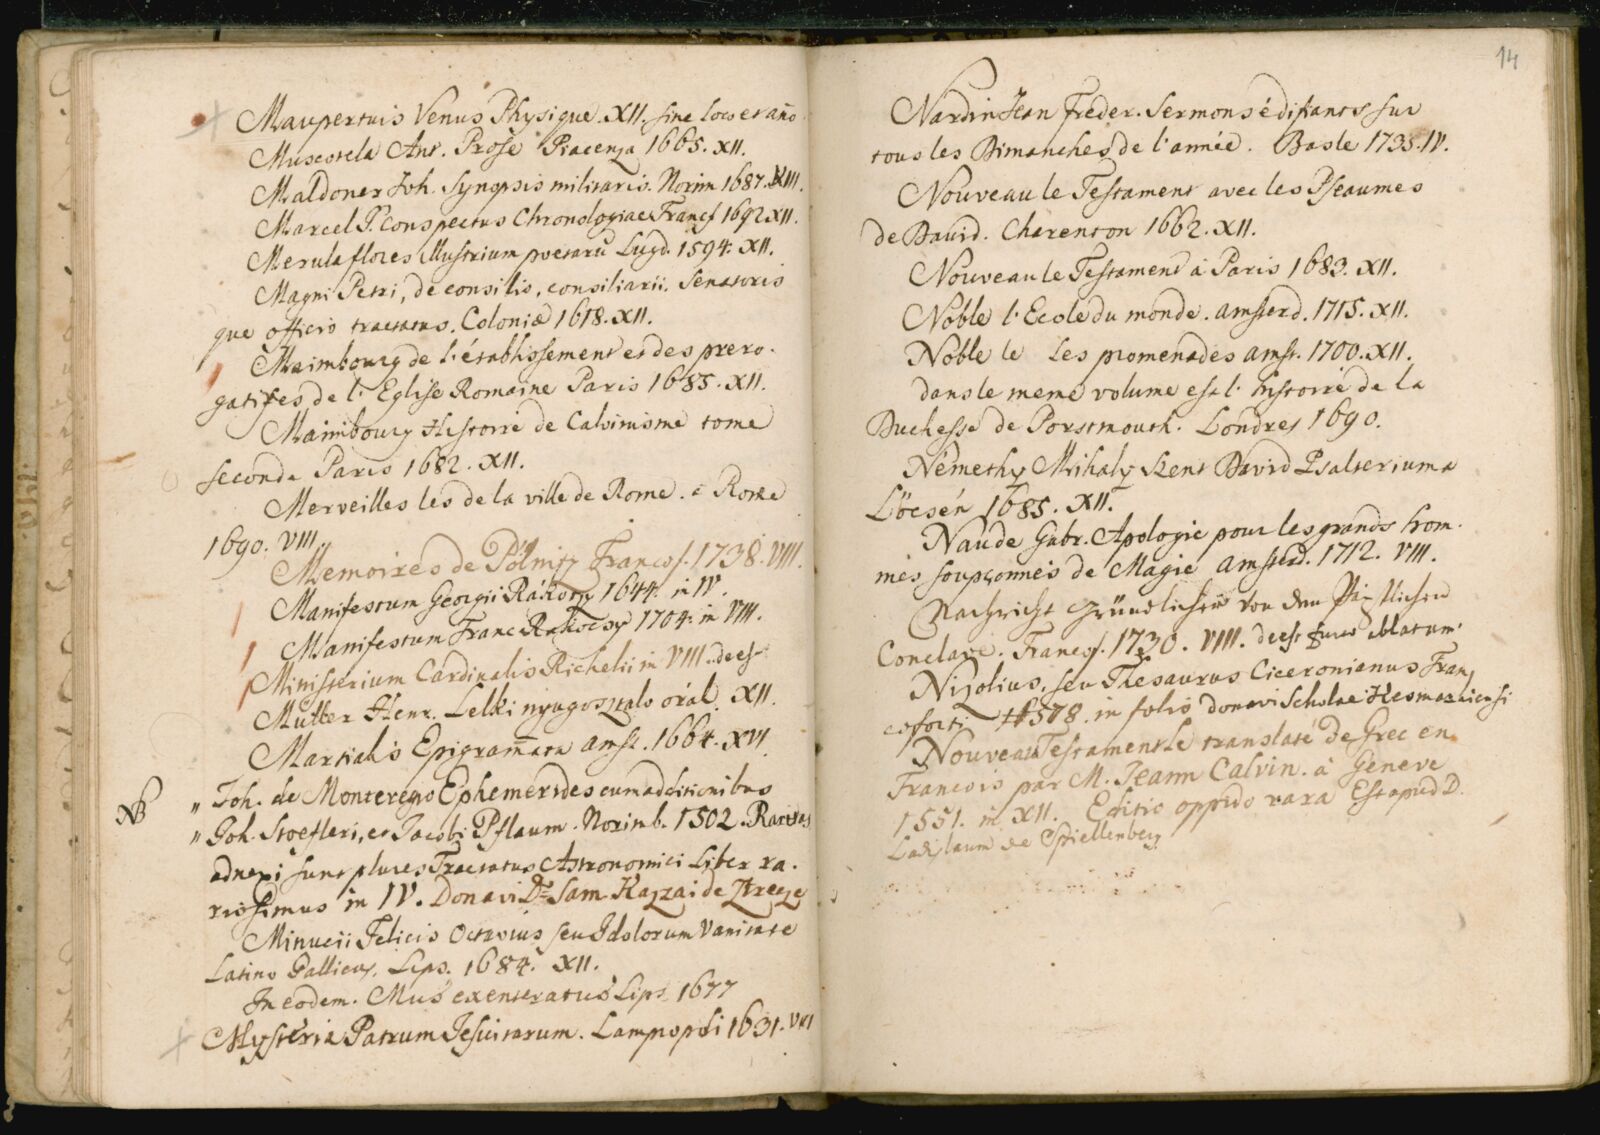 Maupertuis Venus Physique. XII. sine loco et año
Muscotela Ant. Prose Piacenza 1665. XII.
Maldoner Joh. Synopsis militaris. Norim 1687. XIII.
Marcel P. Conspectus Chronologiae Francf 1692 XII.
Merula flores illustrium poetarū Lugd. 1594. XII.
Magni Petri, de consilis, consiliarii. Senatoris
que officio tractatus. Coloniæ 1618. XII.
Maimbourg de l'établissement et des prero.
gatifes de l'Eglise Romaine Paris 1685. XII.
Maimbourg Histoire de Calvinisme tome
seconde Paris 1682. XII.
Merveilles les de la ville de Rome. à Rome
1690. VIII.
Memoires de Pölnitz Francof. 1738. VIII.
Manifestum Georgii Rákotzy 1644. in IV.
Manifestum Franc Rakoczy 1704. in VIII.
Ministerium Cardinalis Richelii in VIII. deest
Muller Henr. Lelki nyugosztalo órái. XII.
Martialis Epigram̄ata Amst. 1664. XVI
NB
" Joh. de Monteregio Ephemerides cum additionibus
" Joh. Stoefleri, et Jacobi Pflaum. Norimb. 1502. Raritas
adnexi sunt plures Tractatus Astronomici Liber ra.
rissimus in IV. Donavi D. Sam Kazzai de
Minucii Felicis Octavius, seu Idolorum Vanitate
Latino Gallicus. Lips. 1684. XII.
In eodem. Mus exenteratus Lips 1677
Mysteria Patrum Jesuitarum. Lampopoli 1631. VIII
14
Nardin Jean Freder. Sermons édifiants sur
tous les Dimanches de l'année. Basle 1735. IV.
Nouveau le Testament avec les Pseaumes
de David. Charenton 1662. XII.
Nouveau le Testament à Paris 1683. XII.
Noble l'Ecole du monde. Amsterd. 1715. XII.
Noble le Les promenades Amst. 1700. XII.
dans le meme volume est l'histoire de la
Duchesse de Portsmouth. Londres 1690.
Némethy Mihaly Szent David Psalteriuma
Löcsén 1685. XII.
Naude Gabr. Apologie pour les grands hom.
mes soupçonnés de Magie Amsterd. 1712. VIII.
Nachricht gründlicher von dem Päpstlichen
Conclave. Francof. 1730. VIII. deest furto ablatum.
Nizolius, seu Thesaurus Ciceronianus Fran
coforti 1578. in folio donavi Scholae Kesmarkiensi
Nouveau Testament Le translaté de Grec en
Francois par M. Jeann Calvin. à Geneve
1551. in XII. Editio oppido rara Est apud D.
Ladislaum de Spiellenberg